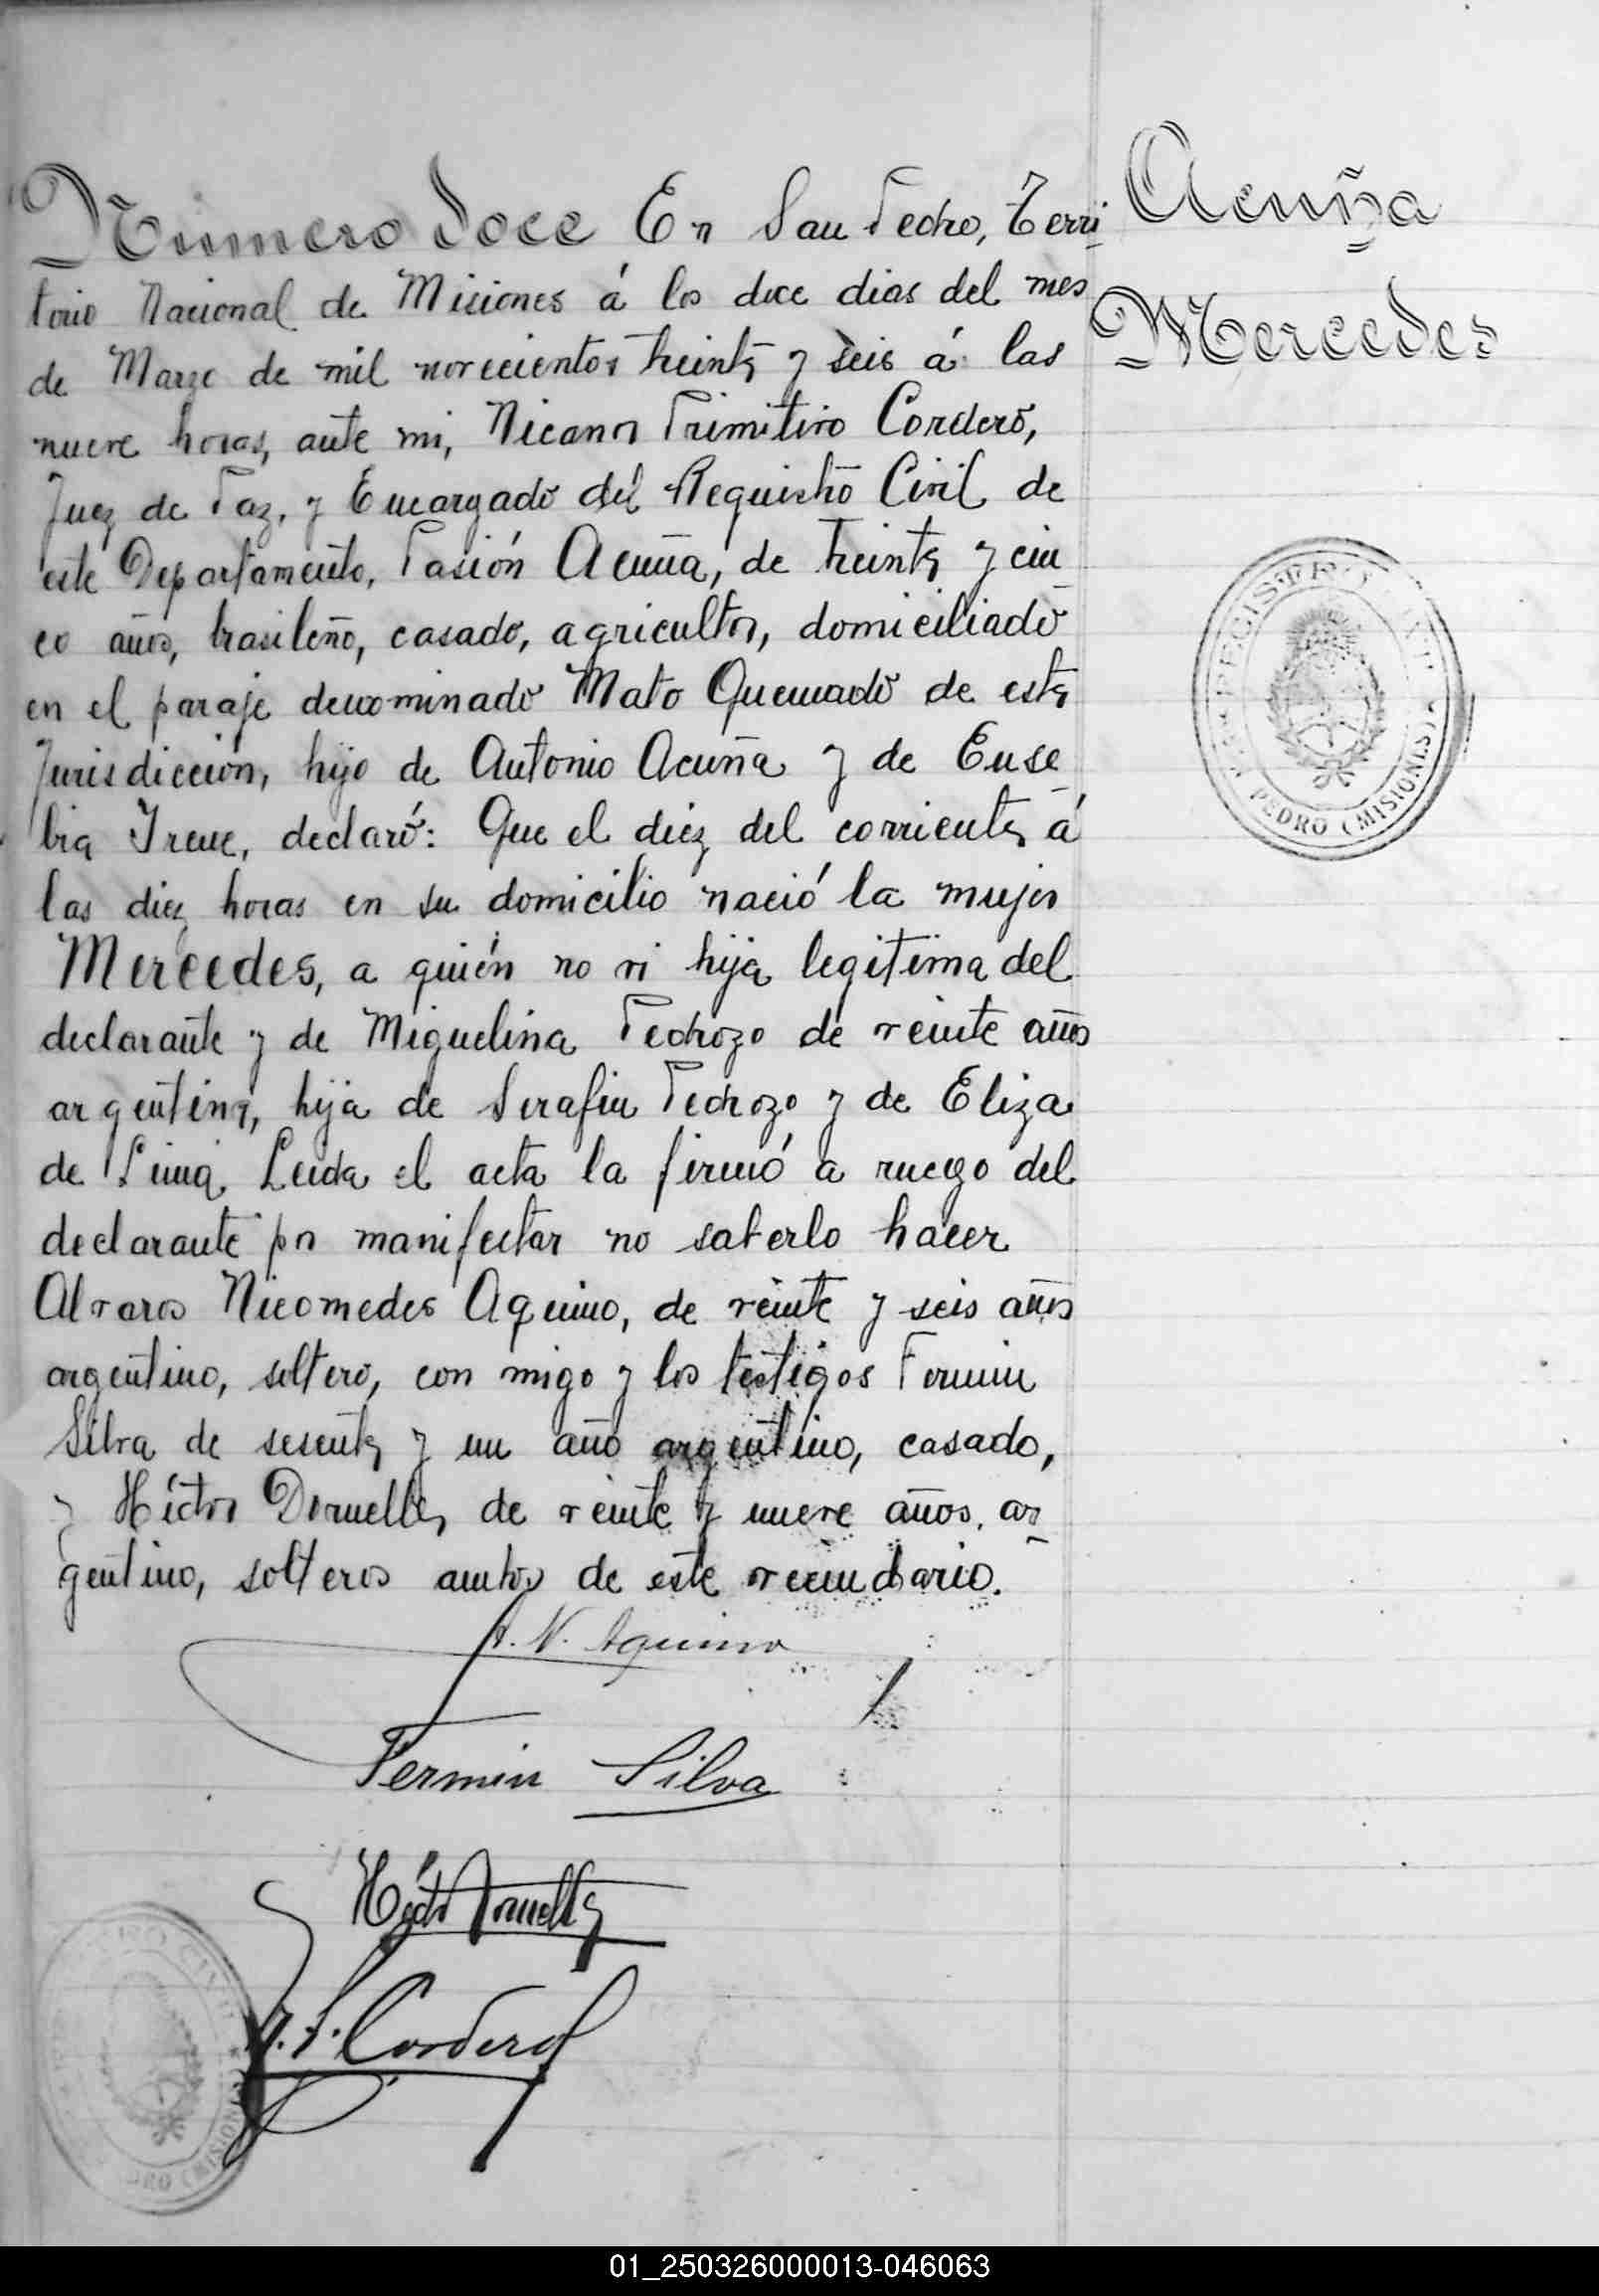 Número doce En San Pedro, Terri
torio Nacional de Misiones á los doce dias del mes
de Marzo de mil novecientos treinta y seis á las
nueve horas, ante mi, Nicanor Primitivo Cordero,
Juez de Paz, y Encargado del Requistro Civil de
este Departamento, Pasión Acuña, de treinta y cin
co años, brasileño, casado, agricultor, domiciliado
en el paraje denominado Mato Quemado de esta
Jurisdicción, hijo de Antonio Acuña y de Euse
bia Irene, declaró: Que el diez del corriente, á
las diez horas en su domicilio nació la mujer
Mercedes, a quién no vi hija legitima del
declarante y de Miguelina Pedrozo de veinte años
argentina, hija de Serafin Pedrozo y de Eliza
de Lima. Leida el acta la firmó a ruego del
declarante por manifestar no saberlo hacer
Alvaros Nicomedes Aquino, de veinte y seis años
argentino, soltero, con migo y los testigos Fermin
Silva de sesenta y un año argentino, casado,
y Héctor Dornelles, de veinte y nueve años, ar
gentino, solteros ambos de este vecindario.
A. N. Aquino
Fermin Silva
Héctor
N. P. Cordero
Acuña
Mercedes
REGISTRO CIVIL
PEDRO (MISIONES)
REGISTRO CIVIL
PEDRO (MISIONES)
01_250326000013-046063